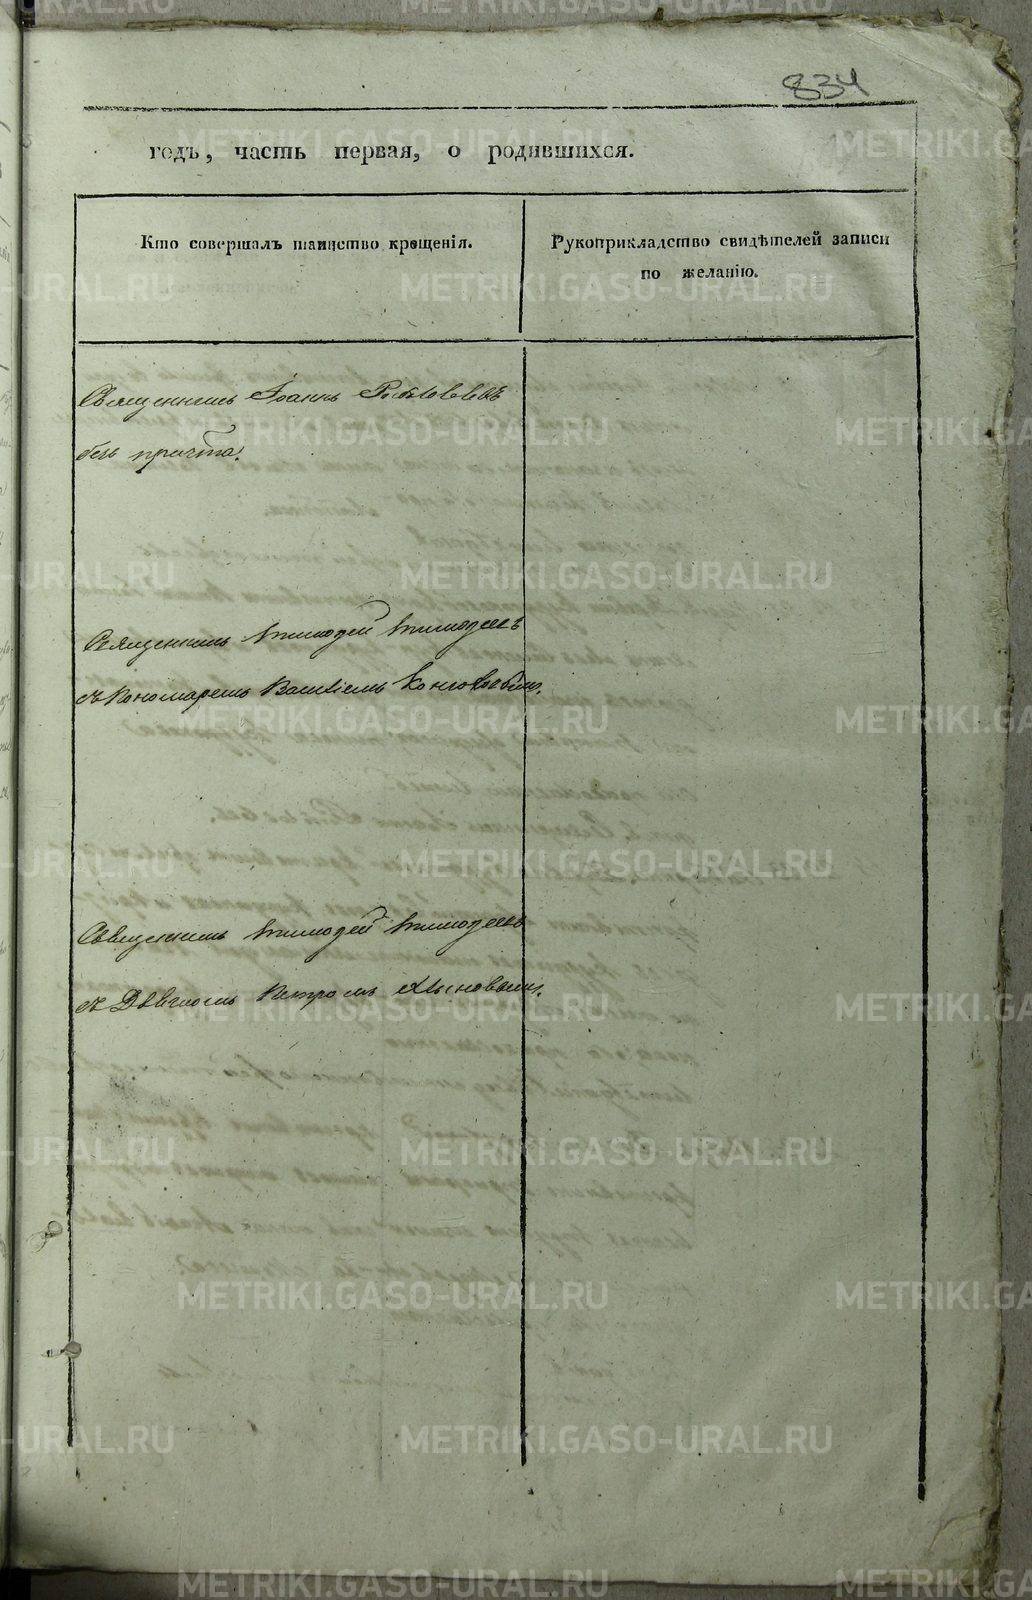 834
годъ, часть первая, о родившихся.
Кто совершалъ таинство крещенія.
Рукоприкладство свидѣтелей записи
по желанію.
Священникъ Іоаннъ
безъ причта.
Священникъ Тимофей Тимофеевъ
съ Пономаремъ Василіемъ
Священникъ Тимофей Тимофеевъ
съ Діакономъ Петромъ Хлыновымъ.
METRIKI.GASO-URAL.RU